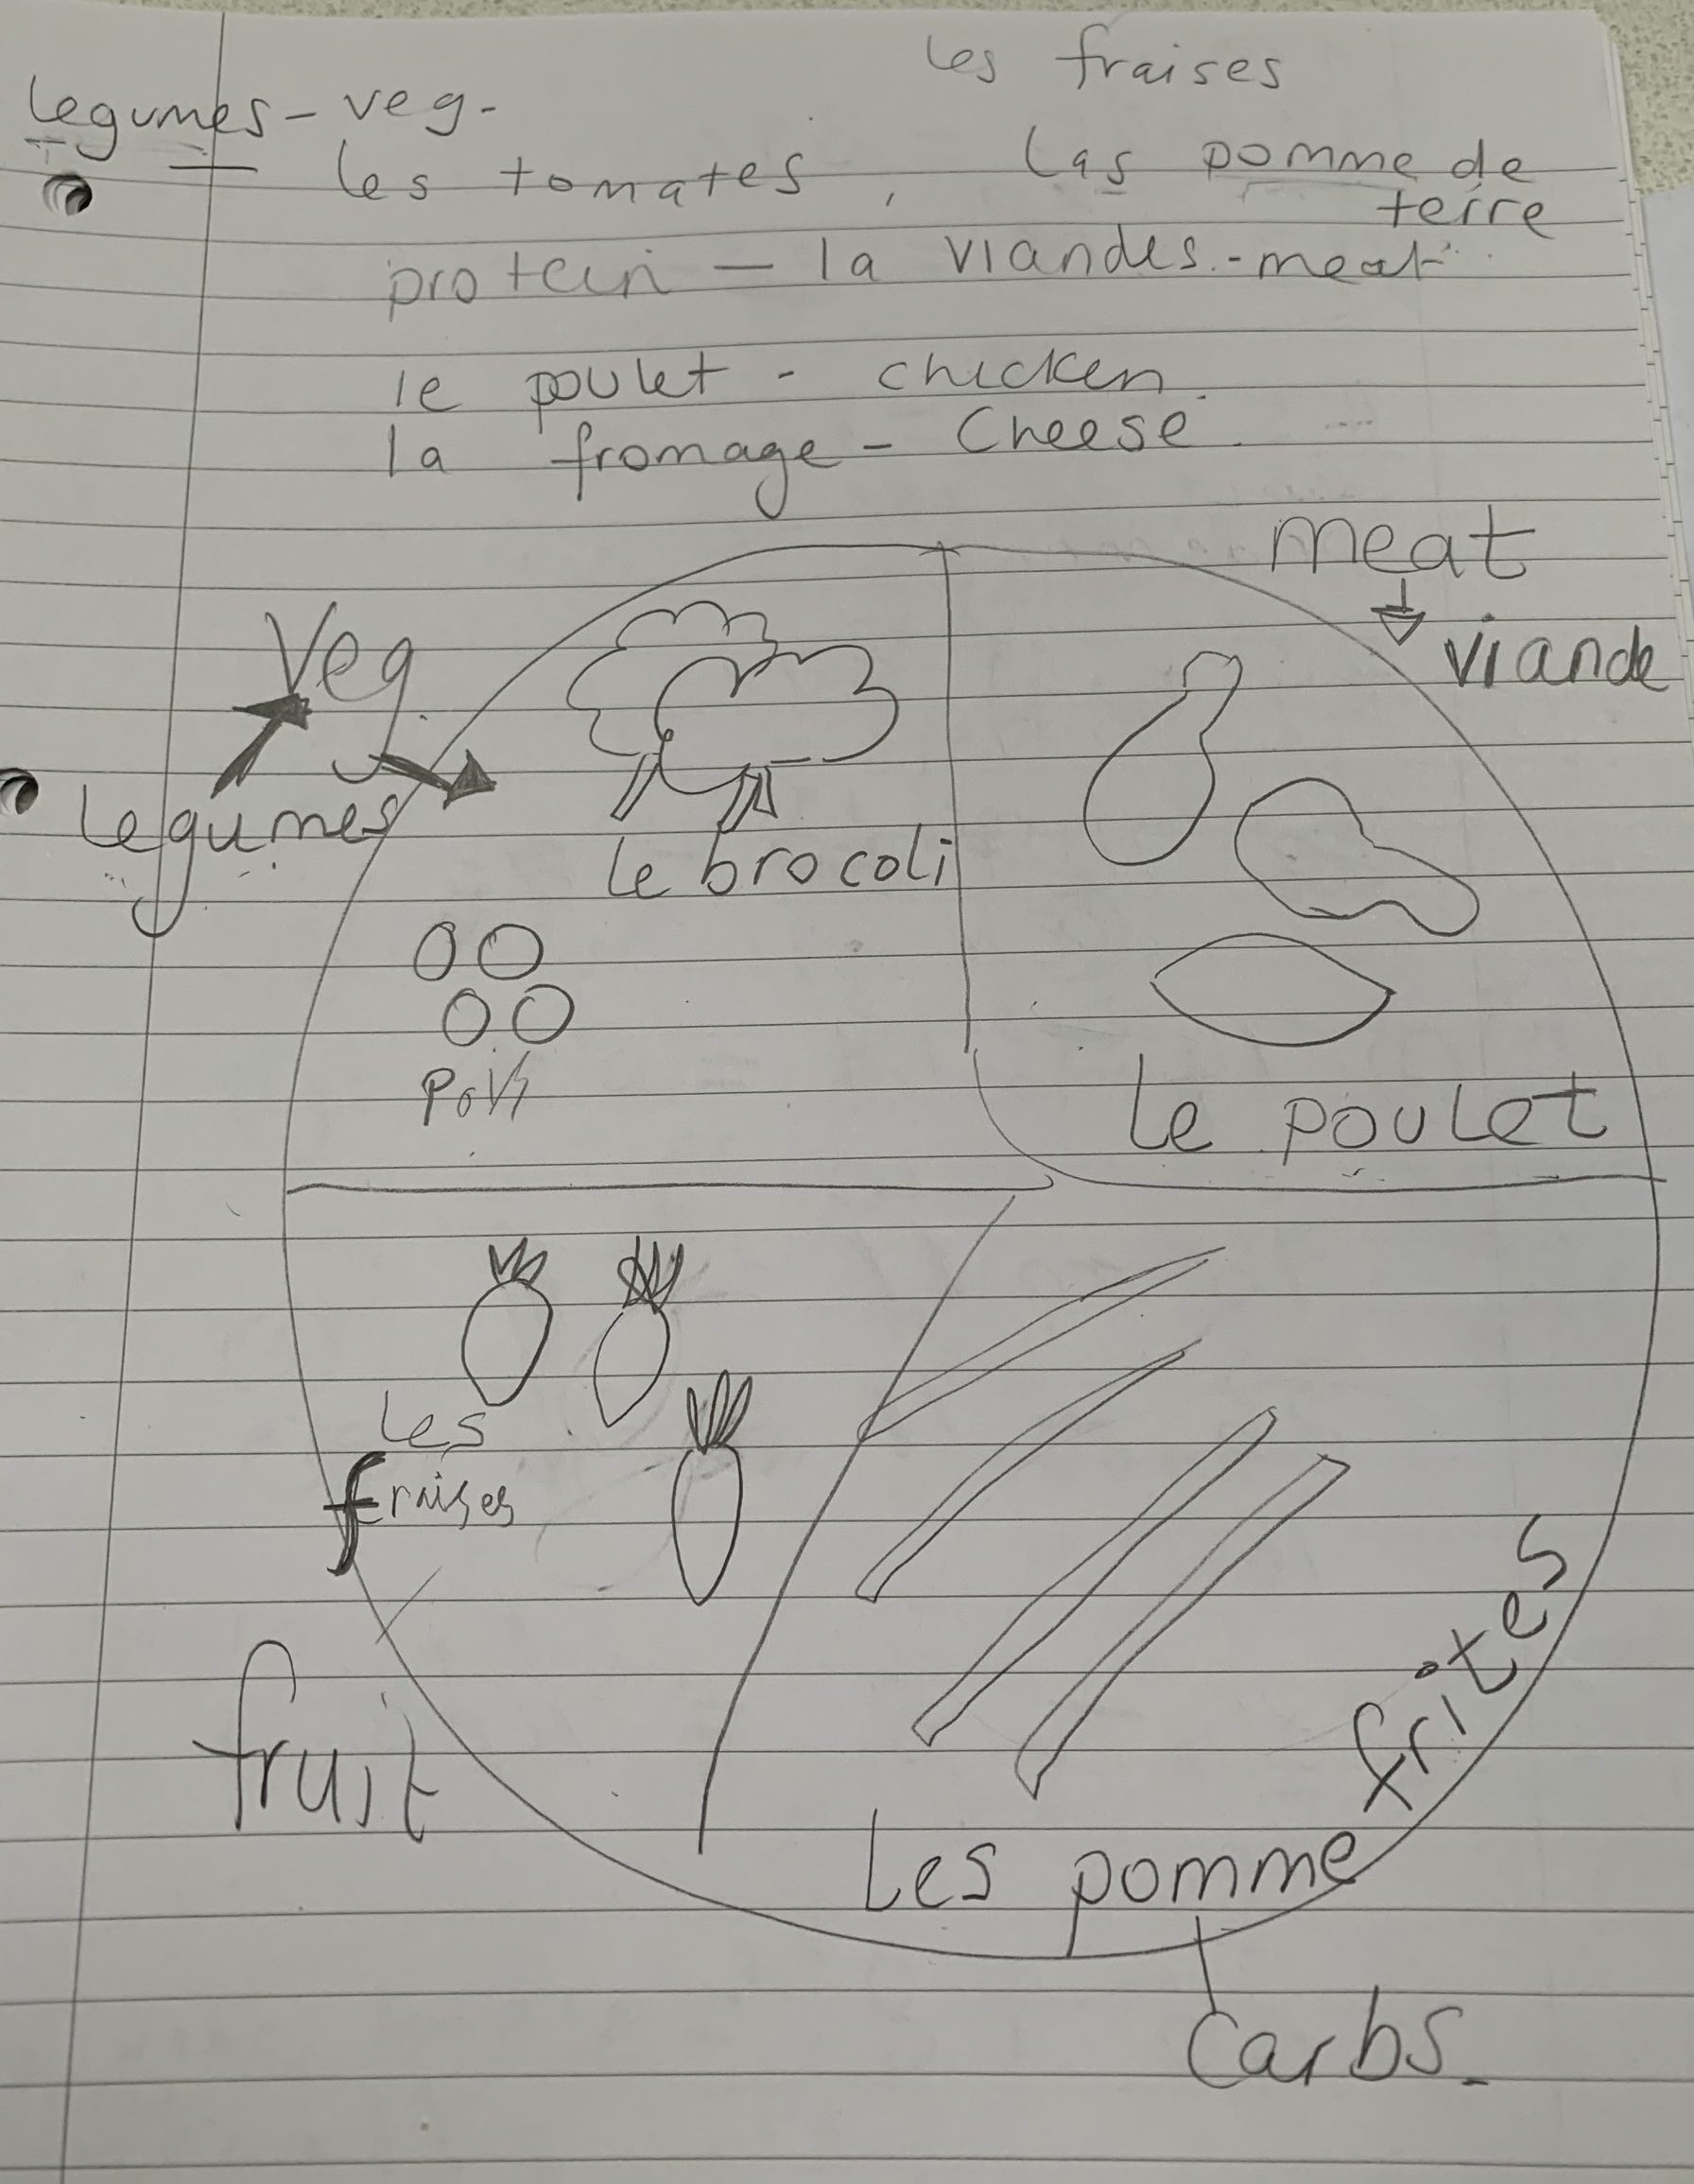 les fraises
legumes - veg -
les tomates , las pomme de
terre
protein - la viandes. - meat
le poulet - chicken.
la fromage - Cheese.
meat
viande
Veg
legumes
le brocoli
le poulet
les
fraises
fruit
les pomme frites
Carbs.